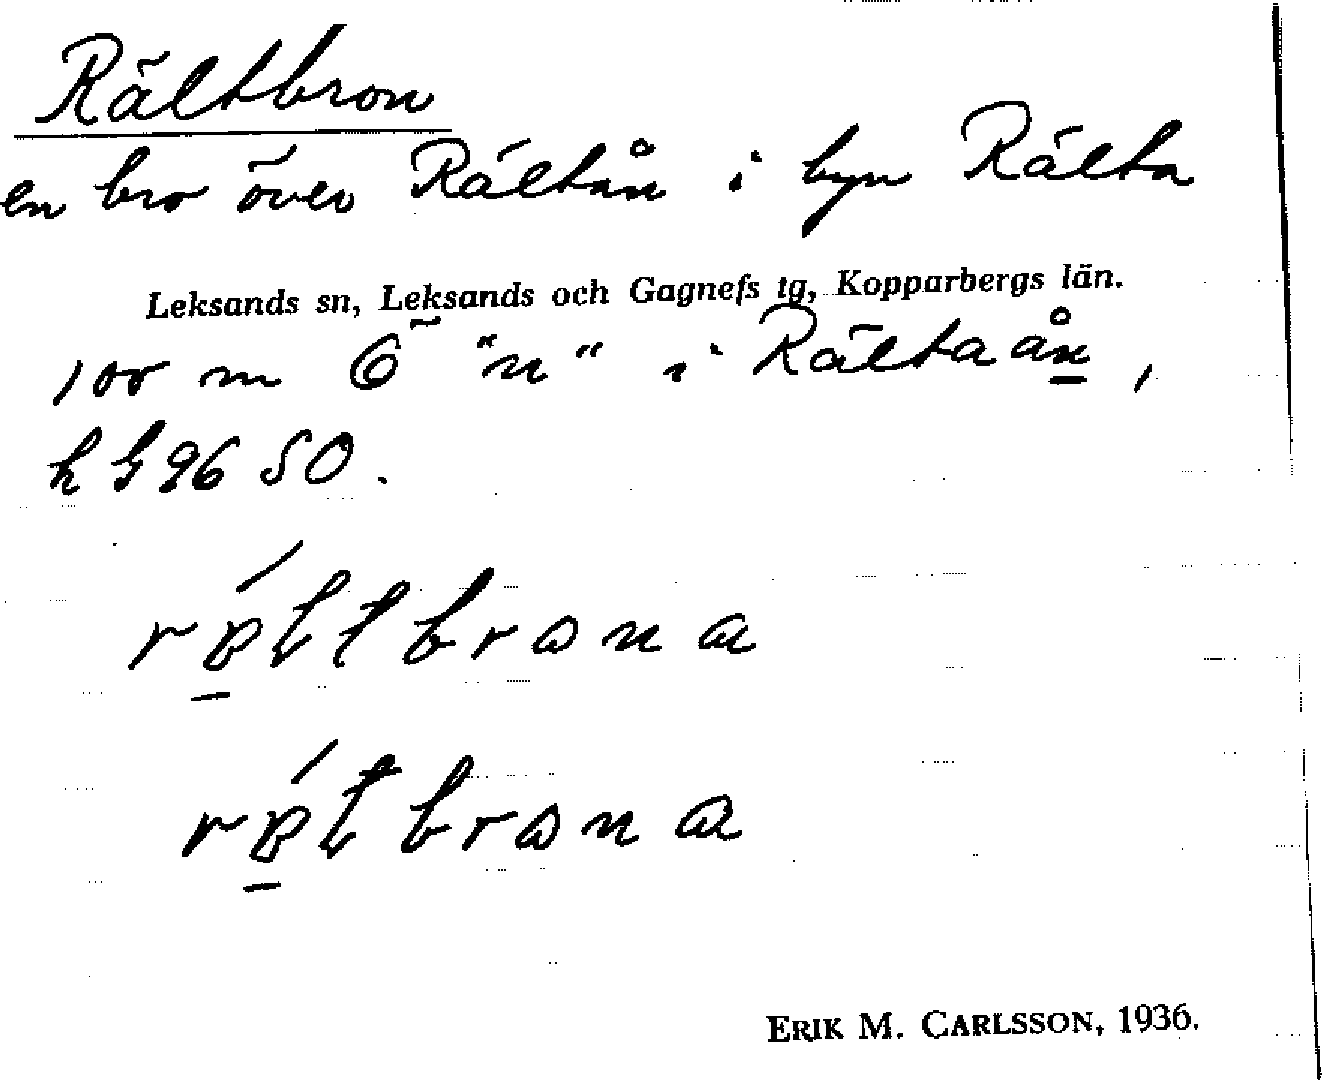 Rältbron
en bro över Rältån i byn Rälta
Leksands sn, Leksands och Gagnefs tg, Kopparbergs län.
100 m Ö "n" i Rältaån,
96 SO.
ERIK M. CARLSSON, 1936.